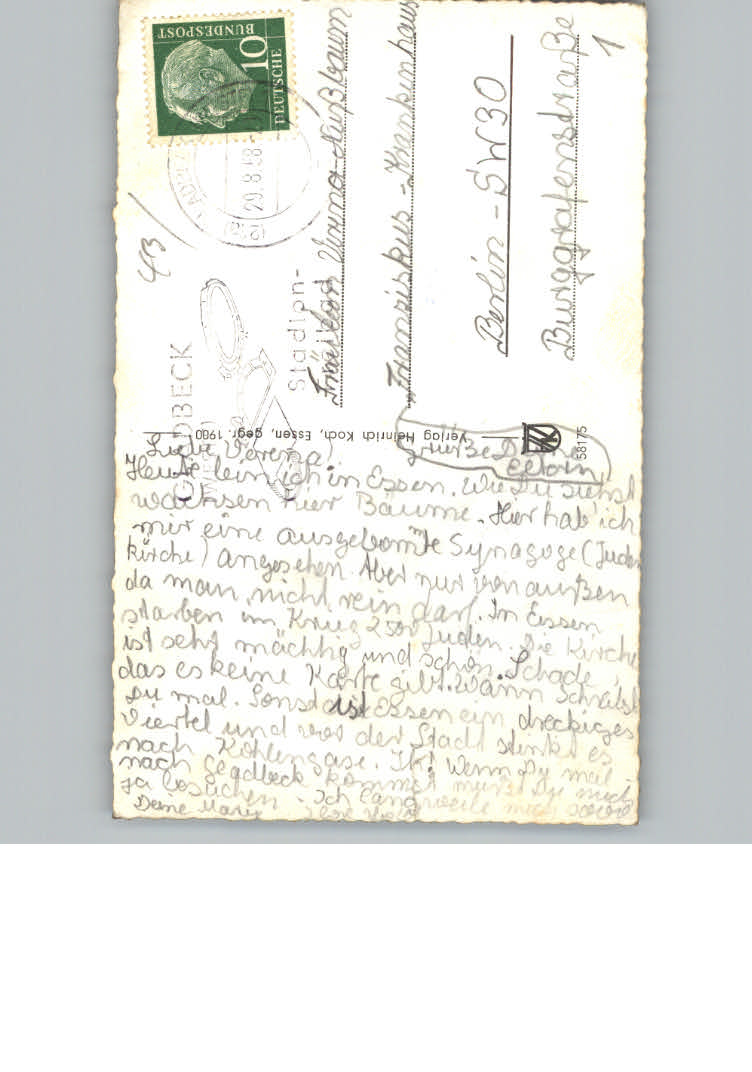 DEUTSCHE
BUNDESPOST
10
29.8.58
GLADBECK
Stadion-
Fräulein Verena Nußbaum
Franziskus-Krankenhaus
Berlin-SW30
Burggrafenstraße
1
Verlag Heinrich Koch, Essen, gegr. 1900
58175
grüße Deine
Eltern
Liebe Verena!
Heute bin ich in Essen. Wie Du siehst
wachsen hier Bäume. Hier hab' ich
mir eine ausgebomte Synagoge (Juden
kirche) angesehen. Aber nur von außen
da man nicht rein darf. In Essen
starben im Krieg 2500 Juden. Die Kirche
ist sehr mächtig und schön. Schade
das es keine Karte gibt. Wann schreibst
Du mal. Sonst ist Essen ein dreckiges
Viertel und vor der Stadt stinkt es
nach Kohlengase. Ih! Wenn Du mal
nach Gladbeck kommst mußt Du mich
ja besuchen. Ich langweile mich
Deine